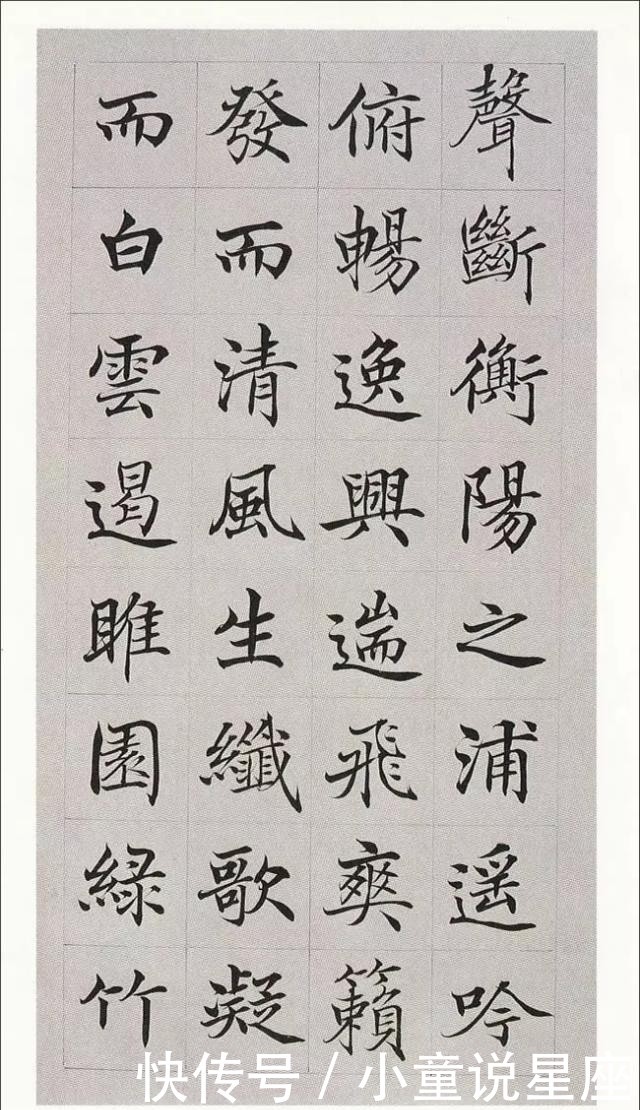 聲斷衡陽之浦遥吟
俯暢逸興遄飛爽籟
發而清風生纖歌凝
而白雲遏睢園緑竹
快传号/小童说星座